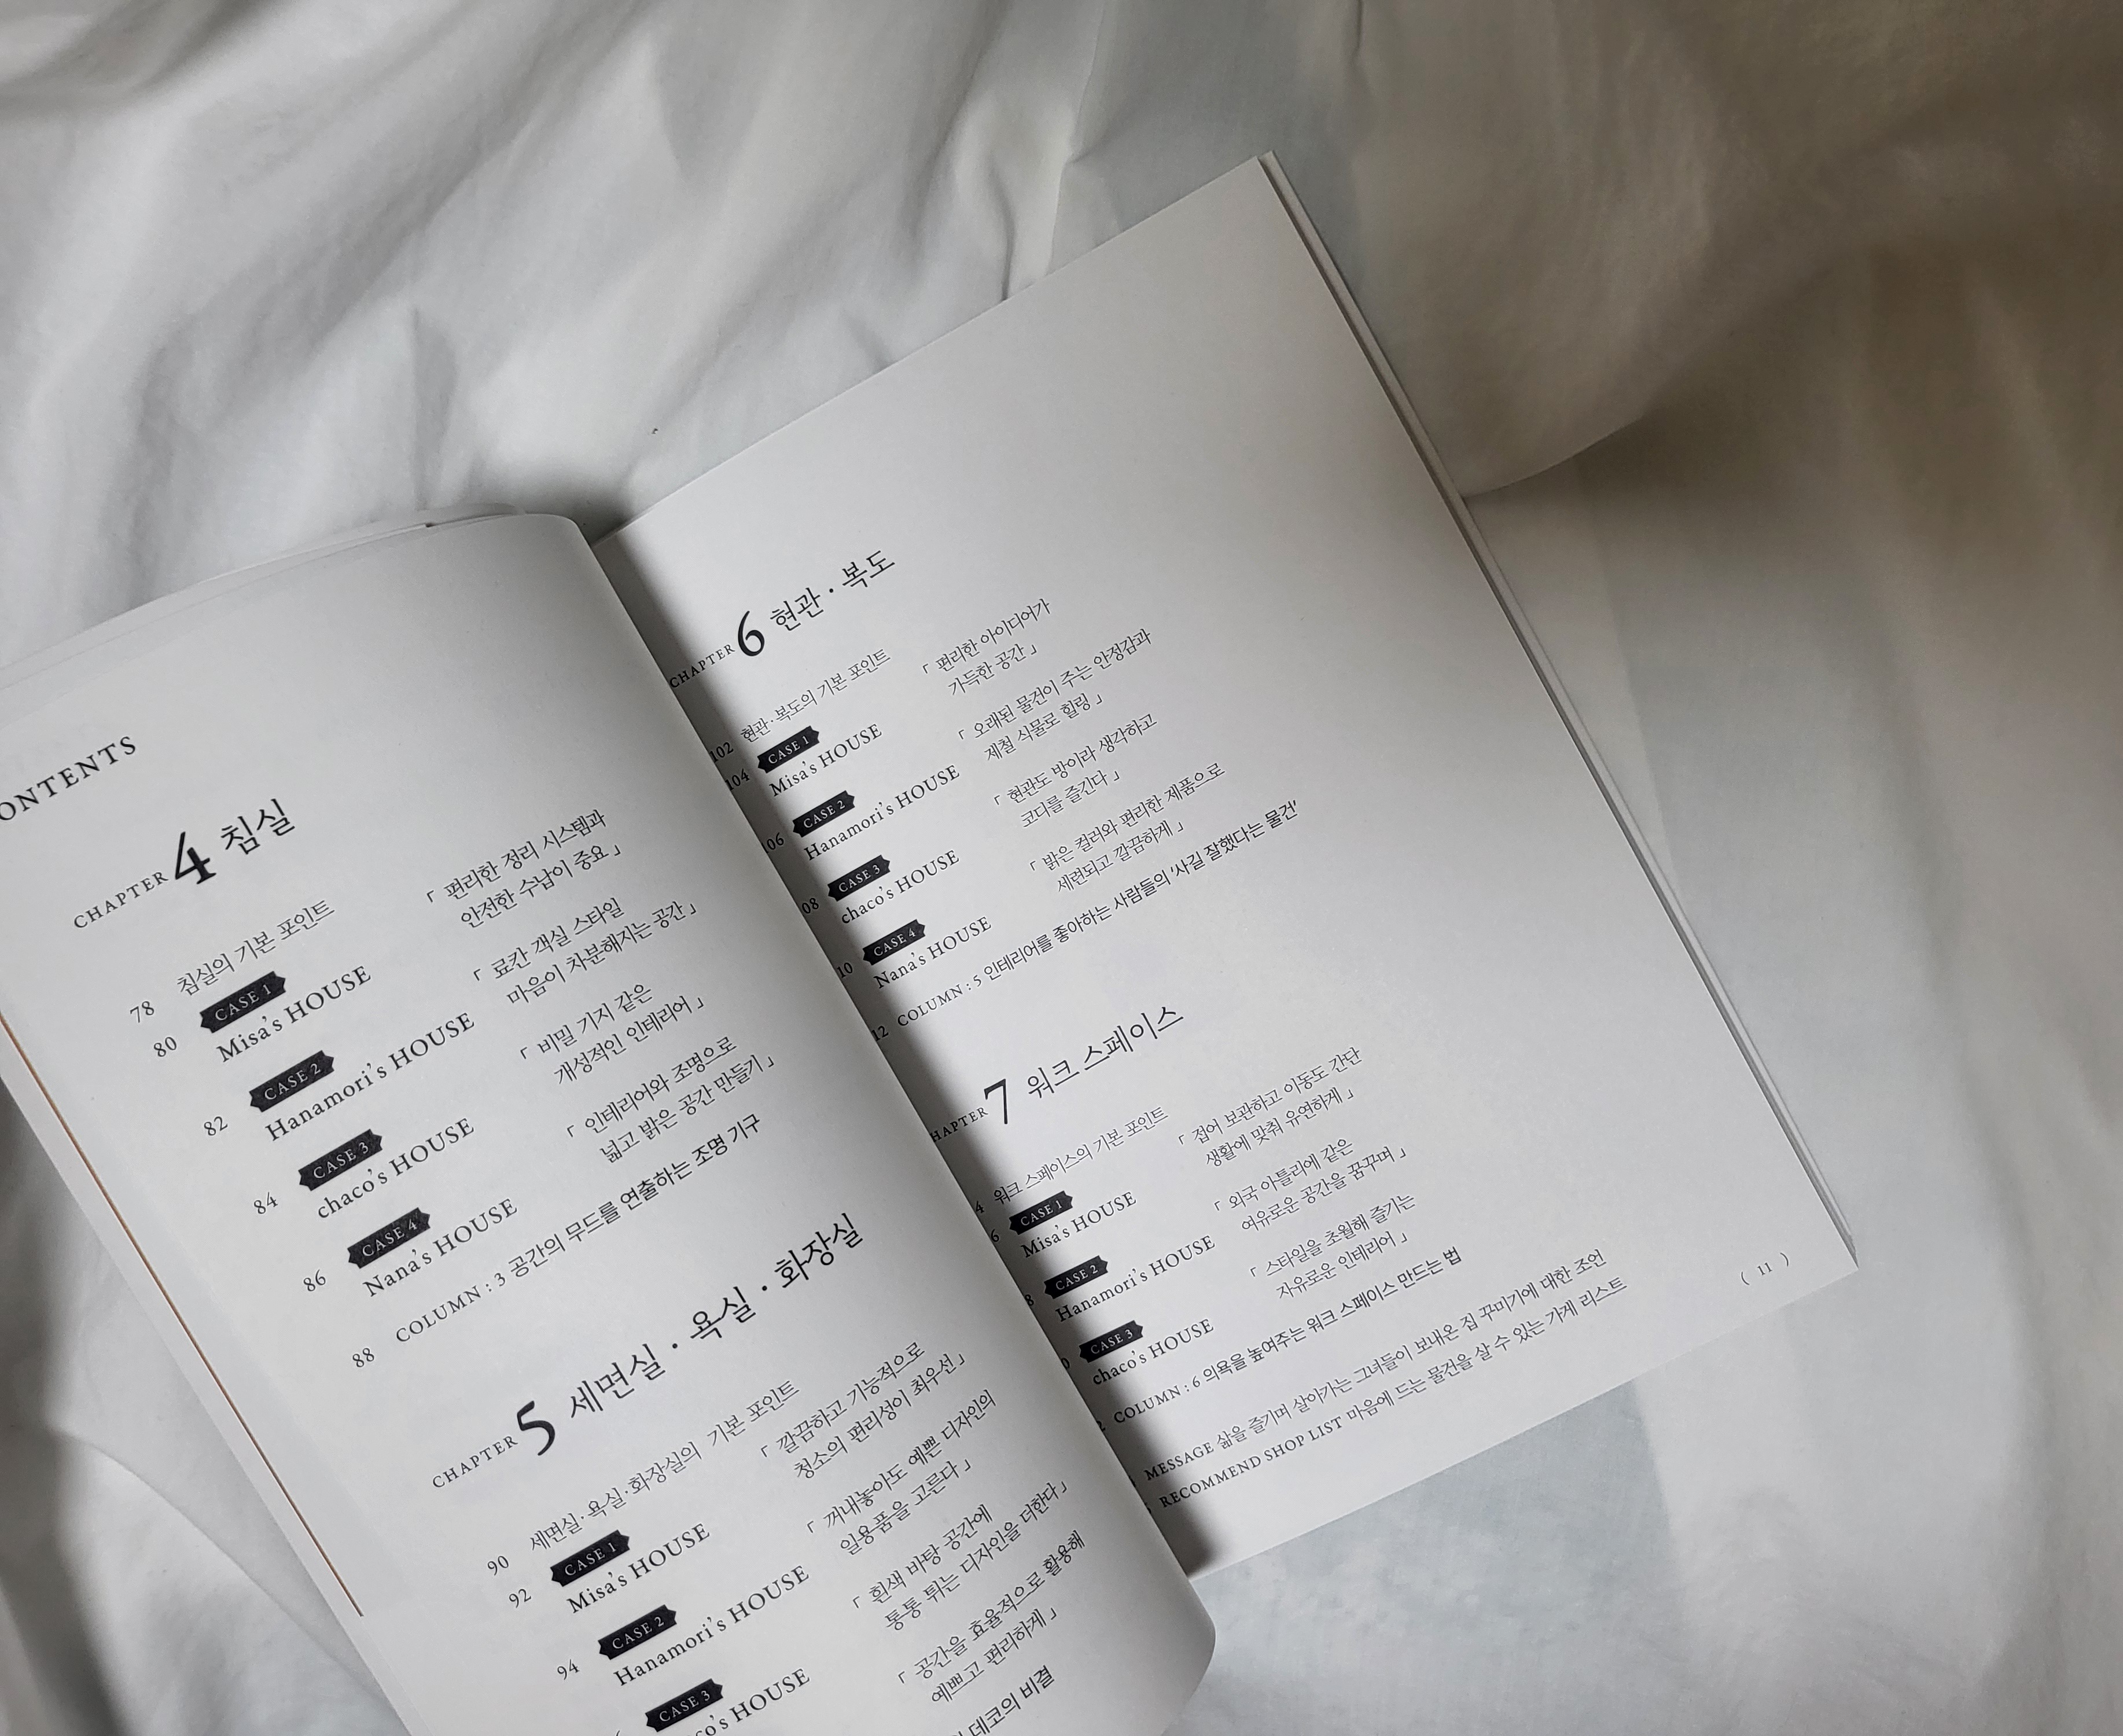 ONTENTS
CHAPTER 4 침실
78 침실의 기본 포인트
80 CASE 1
Misa's HOUSE
「 편리한 정리 시스템과
안전한 수납이 중요 」
82 CASE 2
Hanamori's HOUSE
「 료칸 객실 스타일
마음이 차분해지는 공간 」
84 CASE 3
chaco's HOUSE
「 비밀 기지 같은
개성적인 인테리어 」
86 CASE 4
Nana's HOUSE
「 인테리어와 조명으로
넓고 밝은 공간 만들기 」
88 COLUMN : 3 공간의 무드를 연출하는 조명 기구
CHAPTER 5 세면실 · 욕실 · 화장실
90 세면실·욕실·화장실의 기본 포인트
92 CASE 1
Misa's HOUSE
「 깔끔하고 기능적으로
청소의 편리성이 최우선 」
94 CASE 2
Hanamori's HOUSE
「 꺼내놓아도 예쁜 디자인의
일용품을 고른다 」
CASE 3
co's HOUSE
「 흰색 바탕 공간에
통통 튀는 디자인을 더한다 」
「 공간을 효율적으로 활용해
예쁘고 편리하게 」
데코의 비결
CHAPTER 6 현관 · 복도
102 현관·복도의 기본 포인트
104 CASE 1
Misa's HOUSE
「 편리한 아이디어가
가득한 공간 」
06 CASE 2
Hanamori's HOUSE
「 오래된 물건이 주는 안정감과
제철 식물로 힐링 」
08 CASE 3
chaco's HOUSE
「 현관도 방이라 생각하고
코디를 즐긴다 」
10 CASE 4
Nana's HOUSE
「 밝은 컬러와 편리한 제품으로
세련되고 깔끔하게 」
12 COLUMN : 5 인테리어를 좋아하는 사람들의 '사길 잘했다는 물건'
HAPTER 7 워크 스페이스
4 워크 스페이스의 기본 포인트
6 CASE 1
Misa's HOUSE
「 접어 보관하고 이동도 간단
생활에 맞춰 유연하게 」
8 CASE 2
Hanamori's HOUSE
「 외국 아틀리에 같은
여유로운 공간을 꿈꾸며 」
0 CASE 3
chaco's HOUSE
「 스타일을 초월해 즐기는
자유로운 인테리어 」
2 COLUMN : 6 의욕을 높여주는 워크 스페이스 만드는 법
MESSAGE 삶을 즐기며 살아가는 그녀들이 보내온 집 꾸미기에 대한 조언
RECOMMEND SHOP LIST 마음에 드는 물건을 살 수 있는 가게 리스트
( 11 )